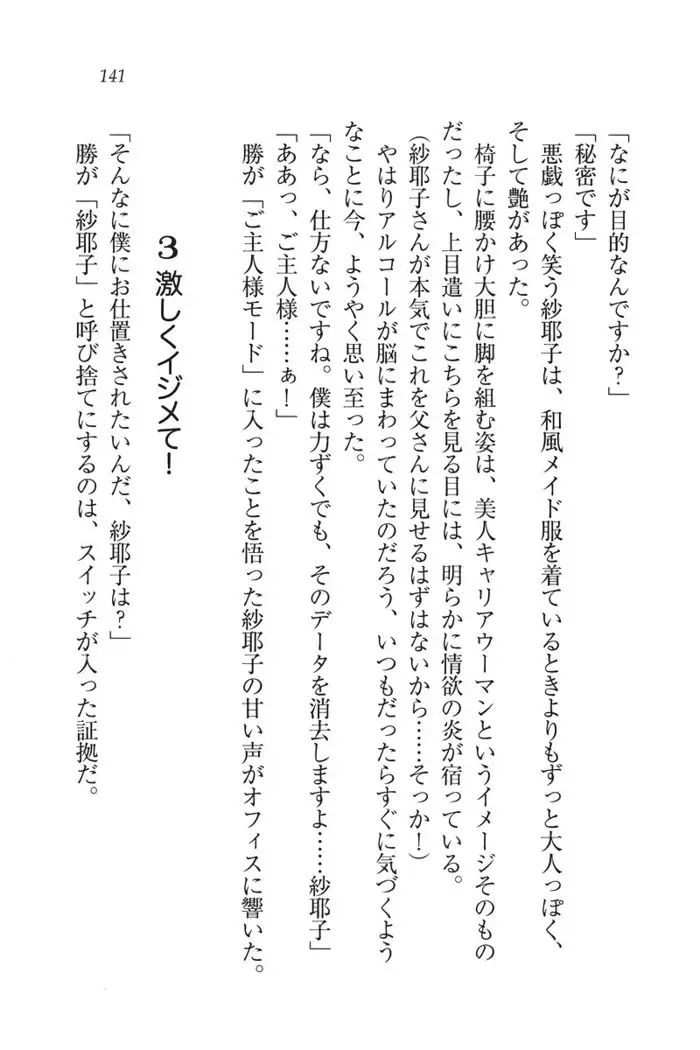 141
「なにが目的なんですか？」
「秘密です」
悪戯っぽく笑う紗耶子は、和風メイド服を着ているときよりもずっと大人っぽく、
そして艶があった。
椅子に腰かけ大胆に脚を組む姿は、美人キャリアウーマンというイメージそのもの
だったし、上目遣いにこちらを見る目には、明らかに情欲の炎が宿っている。
（紗耶子さんが本気でこれを父さんに見せるはずはないから……そっか！）
やはりアルコールが脳にまわっていたのだろう、いつもだったらすぐに気づくよう
なことに今、ようやく思い至った。
「なら、仕方ないですね。僕は力ずくでも、そのデータを消去しますよ……紗耶子」
「ああっ、ご主人様……ぁ！」
勝が「ご主人様モード」に入ったことを悟った紗耶子の甘い声がオフィスに響いた。
3 激しくイジメて！
「そんなに僕にお仕置きされたいんだ、紗耶子は？」
勝が「紗耶子」と呼び捨てにするのは、スイッチが入った証拠だ。